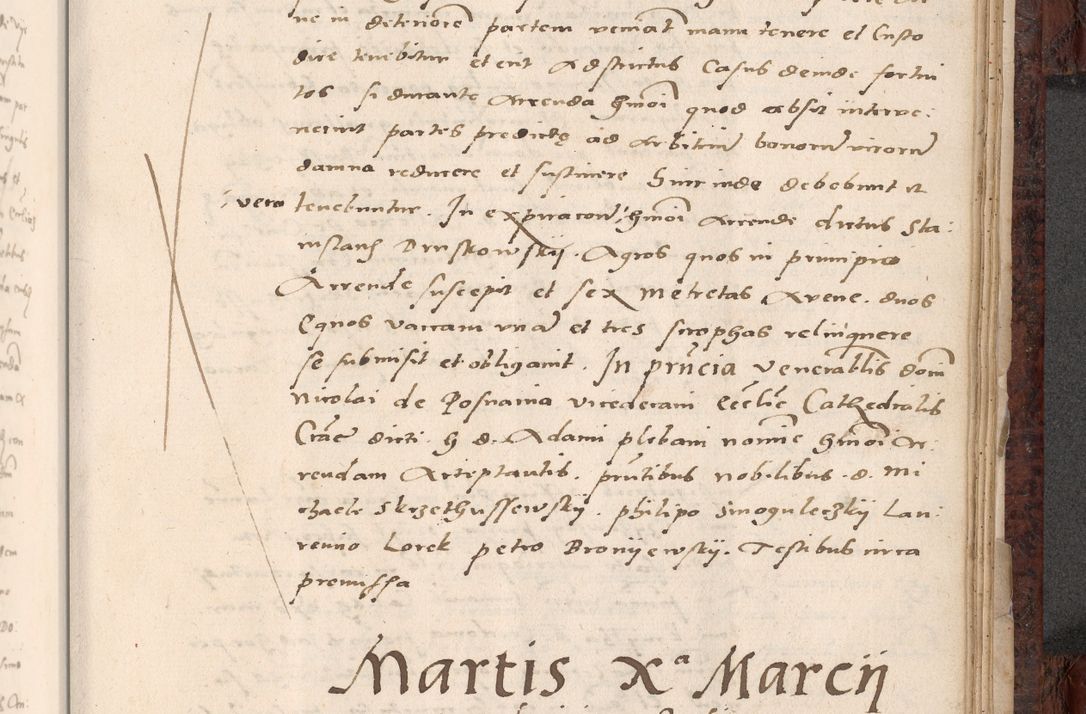 ne in deteriorē partem veniāt manu tenere et Custo
dire tenebitur et erit Adstrictus Casus deinde fortui
tos si durante Arrenda hmōi quod absit interve:
nerint partes predictę ad Arbitriū bonorū virorū
damna reducere et sustinere hinc inde debebunt et
vero tenebuntur. In expiracōne hmōi Arrende dictus Sta:
nislaus Druskowskij. Agros quos in principio
Arrende suscepit et sex metretas Avene. duos
Equos vaccam vnā et tres scrophas relinquere
se submisit et obligavit. In prn̄cia venerabilis domī
Nicolai de Posnania vicedecani Eccl̄ie Cathedralis
Crac̄ dicti h d. Adami plebani nomine hmōi Ar:
rendam Acceptantis. prn̄tibus nobilibus. d. Mi
chaele Skrzethussewskij. philipo Smoguleczkij Lau:
rencio Lorek petro Bronijewskij. Testibus circa
premissa
Martis Xa Marcij